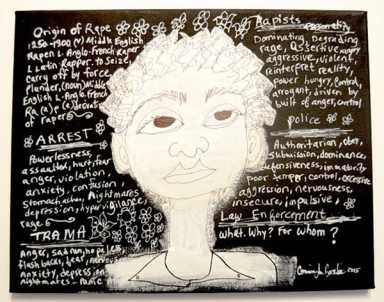 Origin of Rape
1250-1300 (v) Middle English
Rapen L. Anglo-French Raper
L Latin Rapper. to Seize,
Carry off by force,
Plunder, (noun) Middle
English L. Anglo-French
of raper
ARREST
Powerlessness,
assaulted, hurt, fear
anger, violation,
anxiety, confusion,
Stomach aches, Nightmares
depression, hypervigilance,
rage
TRAMA
Anger, sadness, hopeless,
flashbacks, fear, nervous
Anxiety, depression
nightmares - Panic
Rapists
Dominating, Degrading
rage, Assertive, angry
aggressive, violent,
reinterpret reality,
Power hungry, Control,
arrogant, driven by
built of anger, control
Police
Authoritarian, obey,
Submission, dominance,
defensiveness, immaturity
poor temper, control, excessive
aggression, nervousness,
insecure, impulsive
Law Enforcement
What. Why? For Whom?